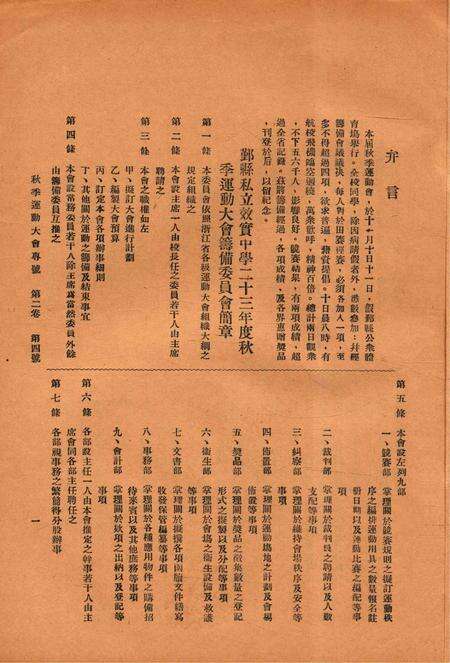 弁言
本屆秋季運動會，於十一月十日十一日，假鄞縣公衆體
育塲舉行。全校同學，除因病請假者外，悉數參加；幷經
籌備會議議決，每人對於田賽徑賽，必須各加入一項，至
多不得超過四項，欲求普遍，藉資提倡。十日晨八時，有
航校飛機臨空過校，萬衆歡呼，精神百倍。總計兩日觀衆
，不下五六千人，影響良好。競賽結果，有兩項成績，超
過全省記錄。茲將籌備經過，各項成績，及各界惠贈獎品
，刊登於后，以留紀念。
鄞縣私立效實中學二十三年度秋
季運動大會籌備委員會簡章
第一條　本委員會依照浙江省各級運動大會組織大綱之
規定組織之
第二條　本會設主席一人由校長任之委員若干人由主席
聘請之
第三條　本會之職權如左
甲、擬訂大會進行計劃
乙、編製大會預算
丙、訂定本會各項辦事細則
丁、其他關於運動之籌備及結束事宜
第四條　本會設常務委員若干人除主席爲當然委員外餘
由籌備委員互推之
秋季運動大會專號　第二卷　第四號
第五條　本會設左列九部
一、競賽部　掌理關於競賽規則之擬訂運動秩
序之編排運動用具之數量報名註
冊日期以及運動比賽之編配等事
項
二、裁判部　掌理關於裁判長之聘請以及人數
支配等事項
三、糾察部　掌理關於維持會場秩序及安全等
事項
四、佈置部　掌理關於運動塲地之計劃及會場
佈置等事項
五、獎品部　掌理關於獎品之徵集數量之登記
形式之擬製以及分配等事項
六、衛生部　掌理關於會塲之衛生設備及救護
等事項
七、文書部　掌理關於擬撰各項函牘文件繕寫
收發保管編纂等事項
八、事務部　掌理關於各種應用物件之購備招
待來賓以及其他庶務等事項
九、會計部　掌理關於欵項之出納以及登記等
事項
第六條　各部設主任一人由本會推定之幹事若干人由主
席會同各部主任聘任之
第七條　各部視事務之繁簡得分股辦事
一